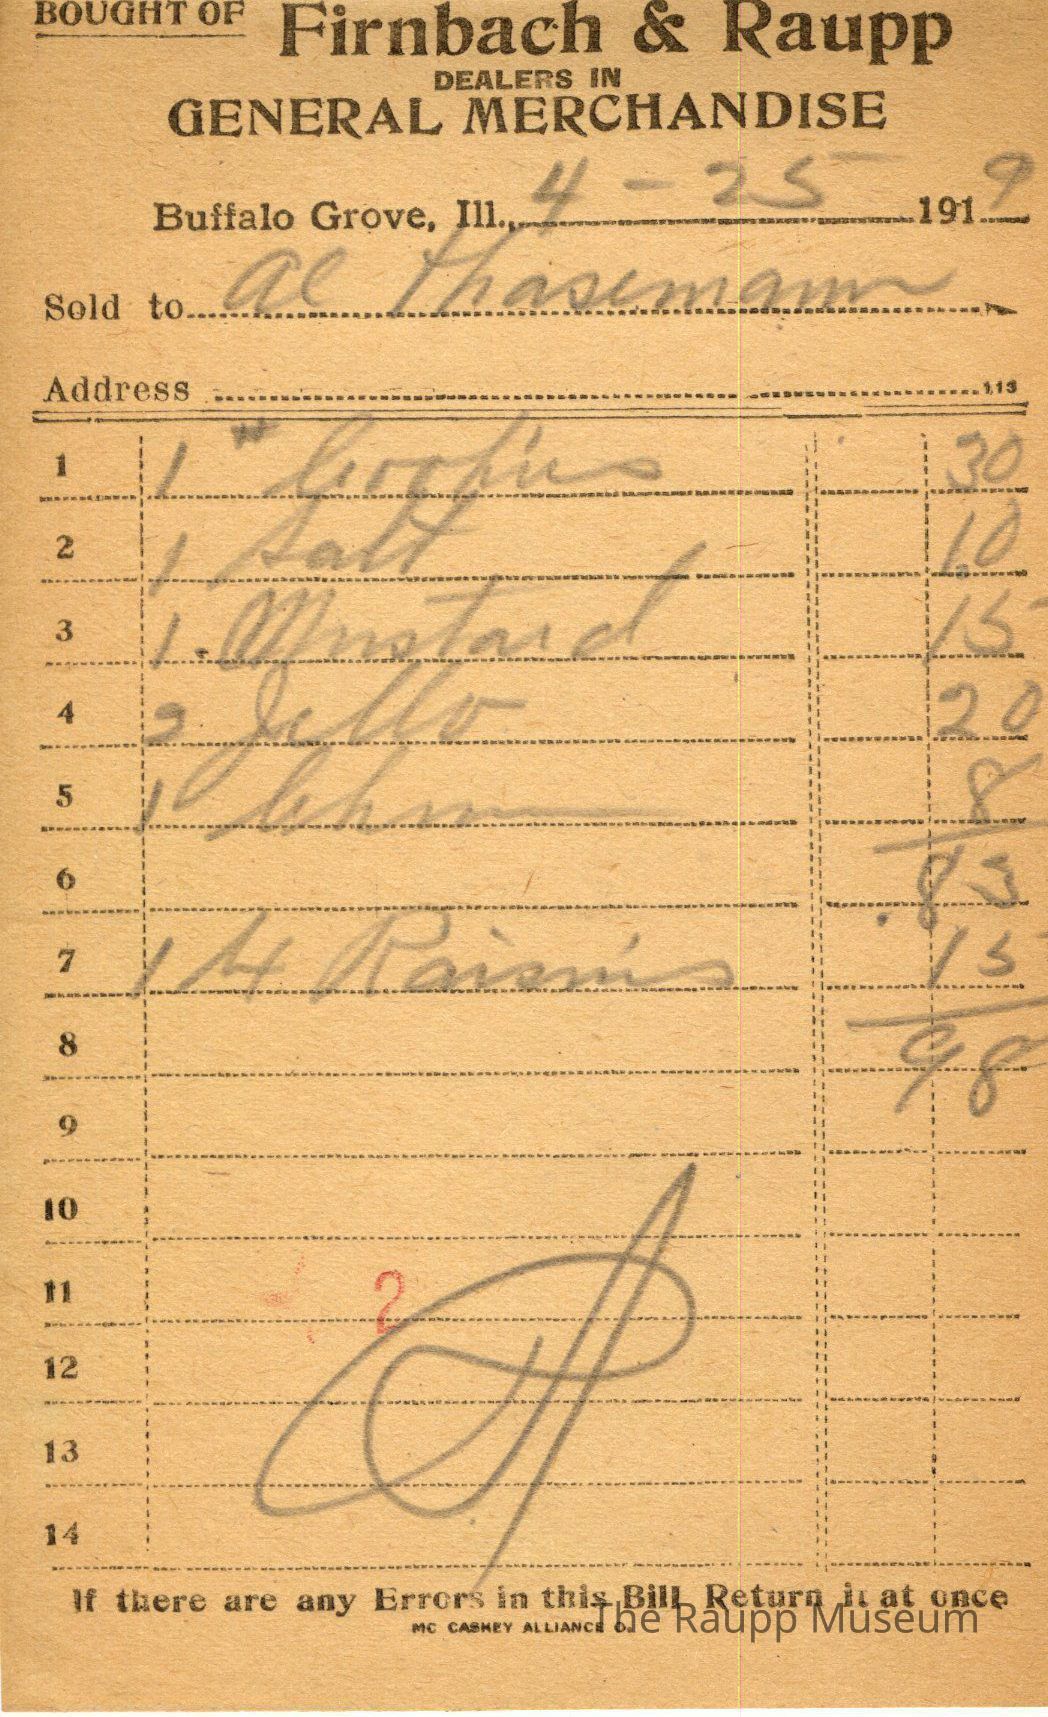 BOUGHT OF Firnbach & Raupp
DEALERS IN
GENERAL MERCHANDISE
Buffalo Grove, Ill., 4 - 25 1919
Sold to Al Thasemann
Address 113
1 1 # 30
2 1 Salt 10
3 1 Mustard 15
4 2 Jello 20
5 1 8
6 .83
7 1 # Raisins 15
8 98
9
10
11 2
12
13
14
If there are any Errors in this Bill Return it at once
MC CASKEY ALLIANCE O.
The Raupp Museum